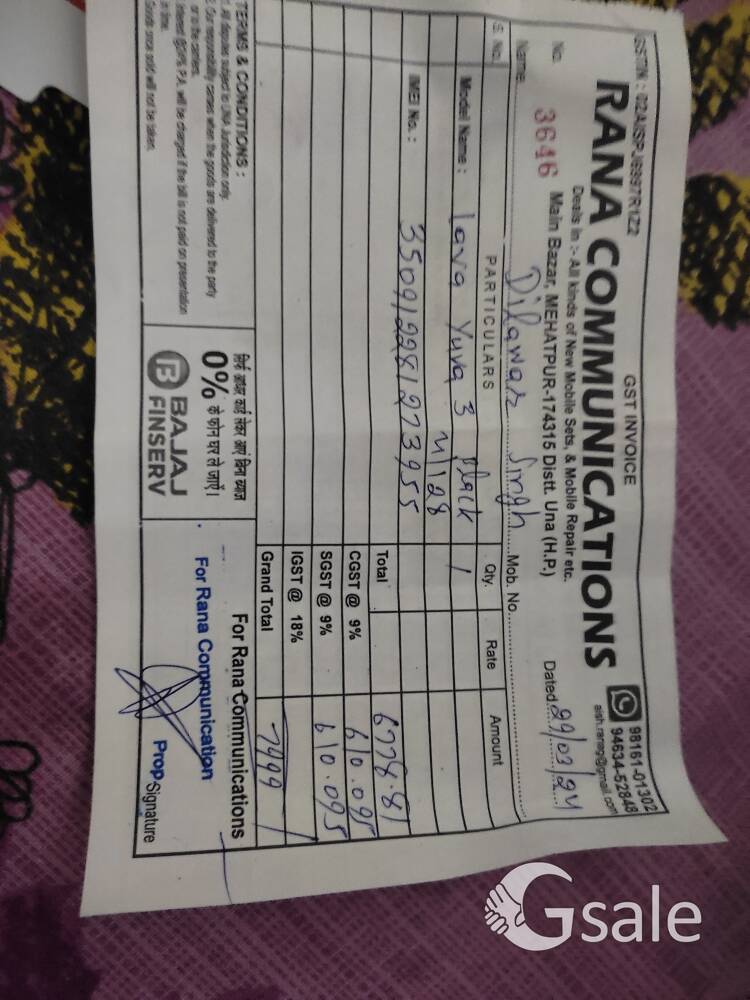 GSTIN : 02AISPJ6997R1Z2
GST INVOICE
98161-01302
94634-52848
RANA COMMUNICATIONS
Deals in :- All kinds of New Mobile Sets, & Mobile Repair etc.
No. 3646 Main Bazar, MEHATPUR-174315 Distt. Una (H.P.) Dated 29/03/24
Name Dilawar Singh Mob. No.
S. No. PARTICULARS Qty. Rate Amount
Model Name : lava Yuva 3 Black 1
4/128
IMEI No. : 350912281273955
Total 6778.81
CGST @ 9% 610.095
SGST @ 9% 610.095
IGST @ 18%
Grand Total 7999/
TERMS & CONDITIONS :
1. All disputes subject to UNA Jurisdiction only.
2. Our responsibility ceases when the goods are delivered to the party
or to the carriers.
Interest @24% P.A. will be charged if the bill is not paid on presentation
in time.
Goods once sold will not be taken.
सिर्फ आधार कार्ड लेकर आएं बिना ब्याज
0% के फोन घर ले जाएँ।
B BAJAJ
FINSERV
For Rana Communications
For Rana Communication
Prop/Signature
Gsale